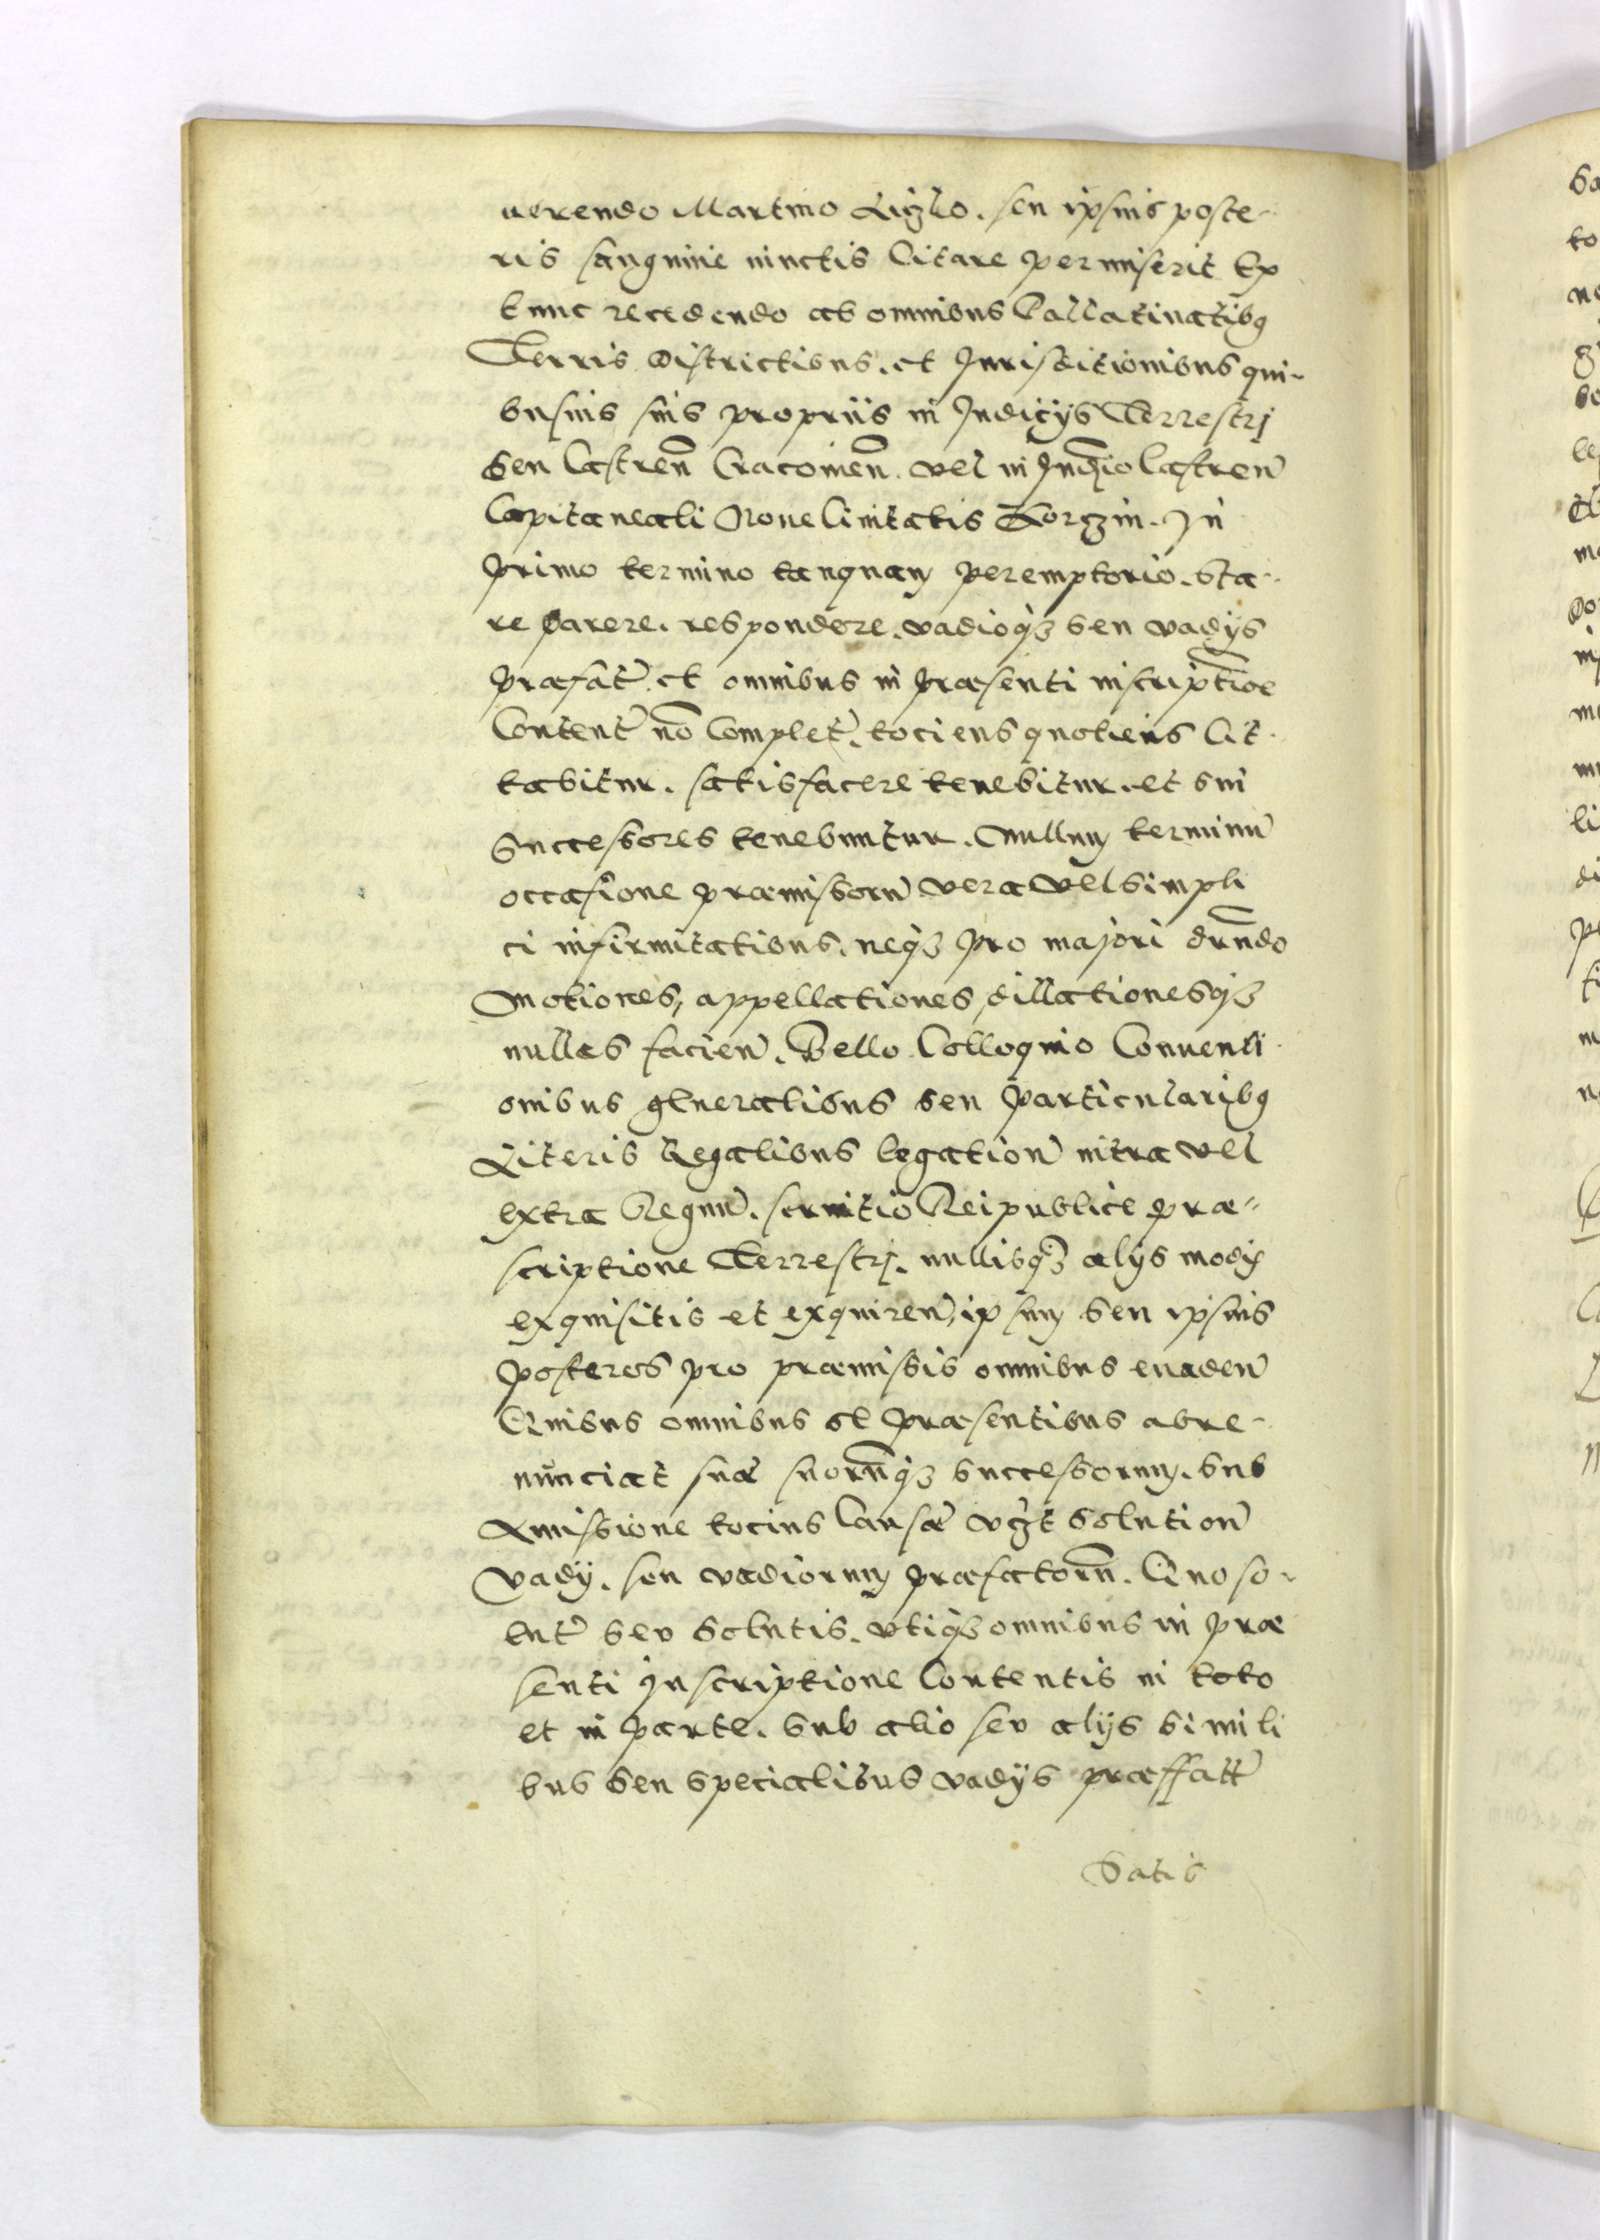 uerendo Martino Ligżo. seu ipsius poste-
ris sanguine iunctis Citare permiserit Ex
tunc recedendo ab omnibus Pallatinatibq
Terris Districtibus. et Jurisditionibus qui-
busuis suis propriis in Judicijs Terrestrj
seu Castreñ Cracouień. vel in Judïo Castreñ
Capitaneali Noue Ciuitatis Corczin. In
primo termino tanquam peremptorio. Sta-
re parere. respondere. vadioqз seu vadijs
præfat̃. et omnibus in præsenti inscriptione
Content̃ nō Complet̃. tociens quoties Cit
tabitur. satisfacere tenebitur. et sui
Successores tenebuntur. Nullum terminū
occasione præmissorū vera vel simpli
ci infirmitatibus. neqз pro majori drñdo
Motiones, appellationes, dillationesqз
nullas facień. Bello Colloquio Conuenti
onibus generalibus seu particularibq
Literis Regalibus legationū intra vel
extra Regnū. seruitio Reipublice præ-
scriptione Terrestrj. nullisqз alijs modis
exquisitis et exquireñ, ipsum seu ipsius
posteros pro præmissis omnibus euadeñ
Quibus omnibus ex præsentibus abre-
nunciat suæ suorūqз successorum. sub
Amissione tocius Causæ vgз̃t Solution̄
vadij. seu vadiorum præfatorū. Quo so-
lut̃ seu Solutis. vtiqз omnibus in præ
senti Inscriptione Contentis in toto
et in parte. sub alio seu alijs simili
bus seu specialibus vadijs præffatt̃
Satis